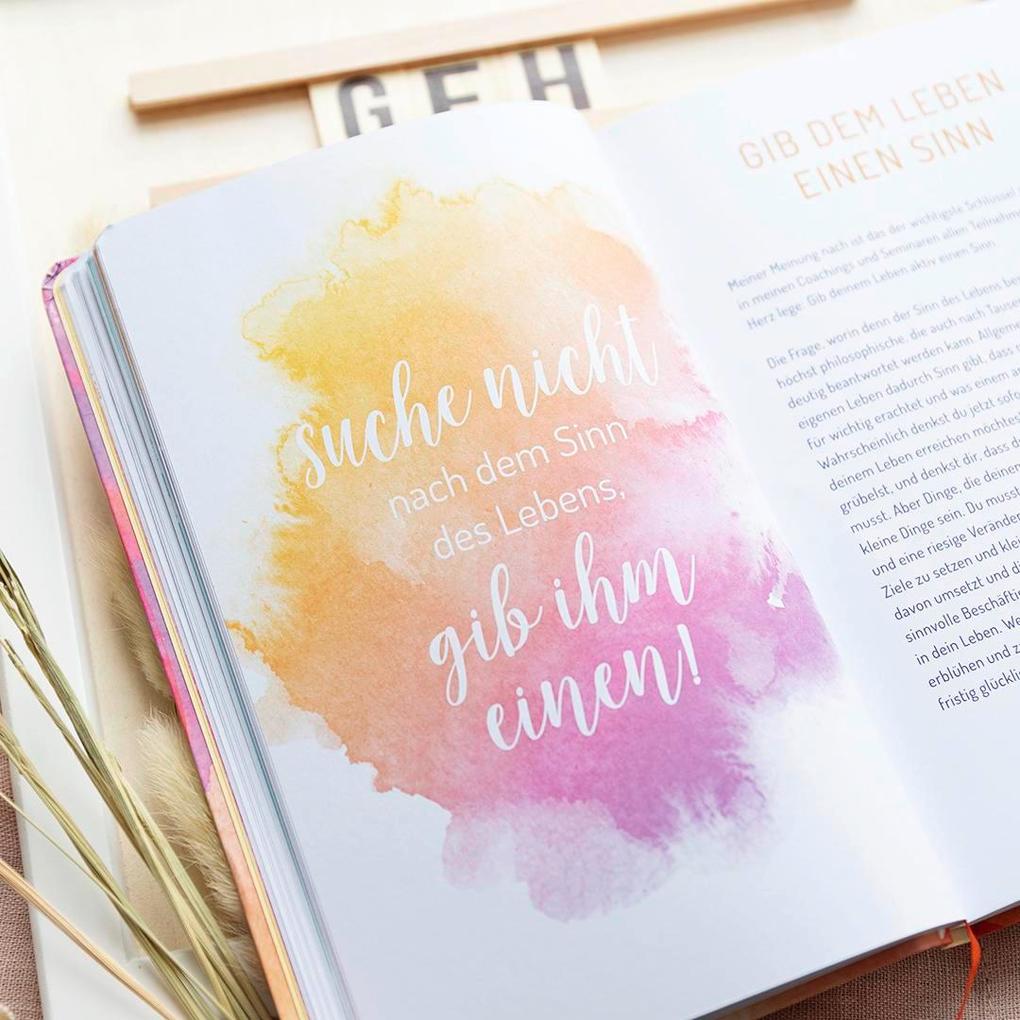 GEH
suche nicht
nach dem Sinn
des Lebens,
gib ihm
einen!
GIB DEM LEBEN
EINEN SINN
Meiner Meinung nach ist das der wichtigste Schlüssel
in meinen Coachings und Seminaren allen
Herz lege: Gib deinem Leben aktiv einen Sinn.
Die Frage, worin denn der Sinn des Lebens
höchst philosophische, die auch nach
deutig beantwortet werden kann.
eigenen Leben dadurch Sinn gibt, dass
für wichtig erachtet und was einem
Wahrscheinlich denkst du jetzt
deinem Leben erreichen
grübelst, und denkst dir, dass
musst. Aber Dinge, die
kleine Dinge sein. Du
und eine riesige
Ziele zu setzen und
davon umsetzt und
sinnvolle
in dein Leben.
erblühen und
fristig